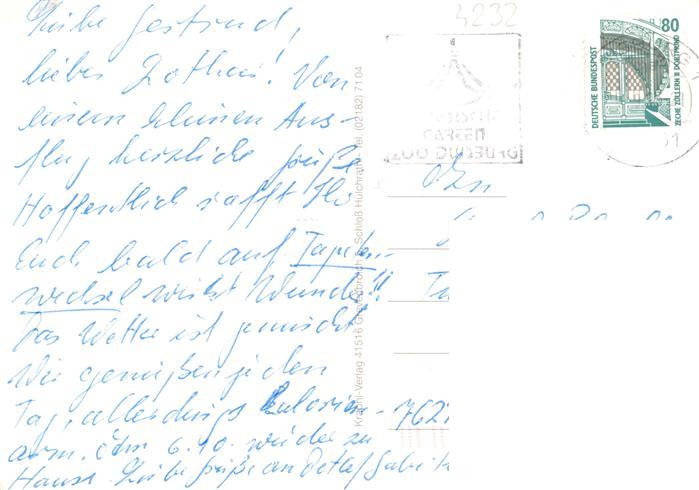 4232
Liebe Gertrud,
lieber Lothar! Von
einem kleinen Aus-
flug herzliche Grüße
Hoffentlich rafft Ihr
Euch bald auf Tapeten-
wechsel wirkt Wunder!!
Das Wetter ist gemischt
Wir genießen jeden
Tag, allerdings Kalorien-
arm. Am 6.10. wieder zu
Hause. Liebe Grüße an
ZOO DUISBURG
80
DEUTSCHE BUNDESPOST
ZECHE ZOLLERN II DORTMUND
Krapohl-Verlag 41516 Grevenbroich Schloß Hülchrath Tel. (02182) 71 04
762